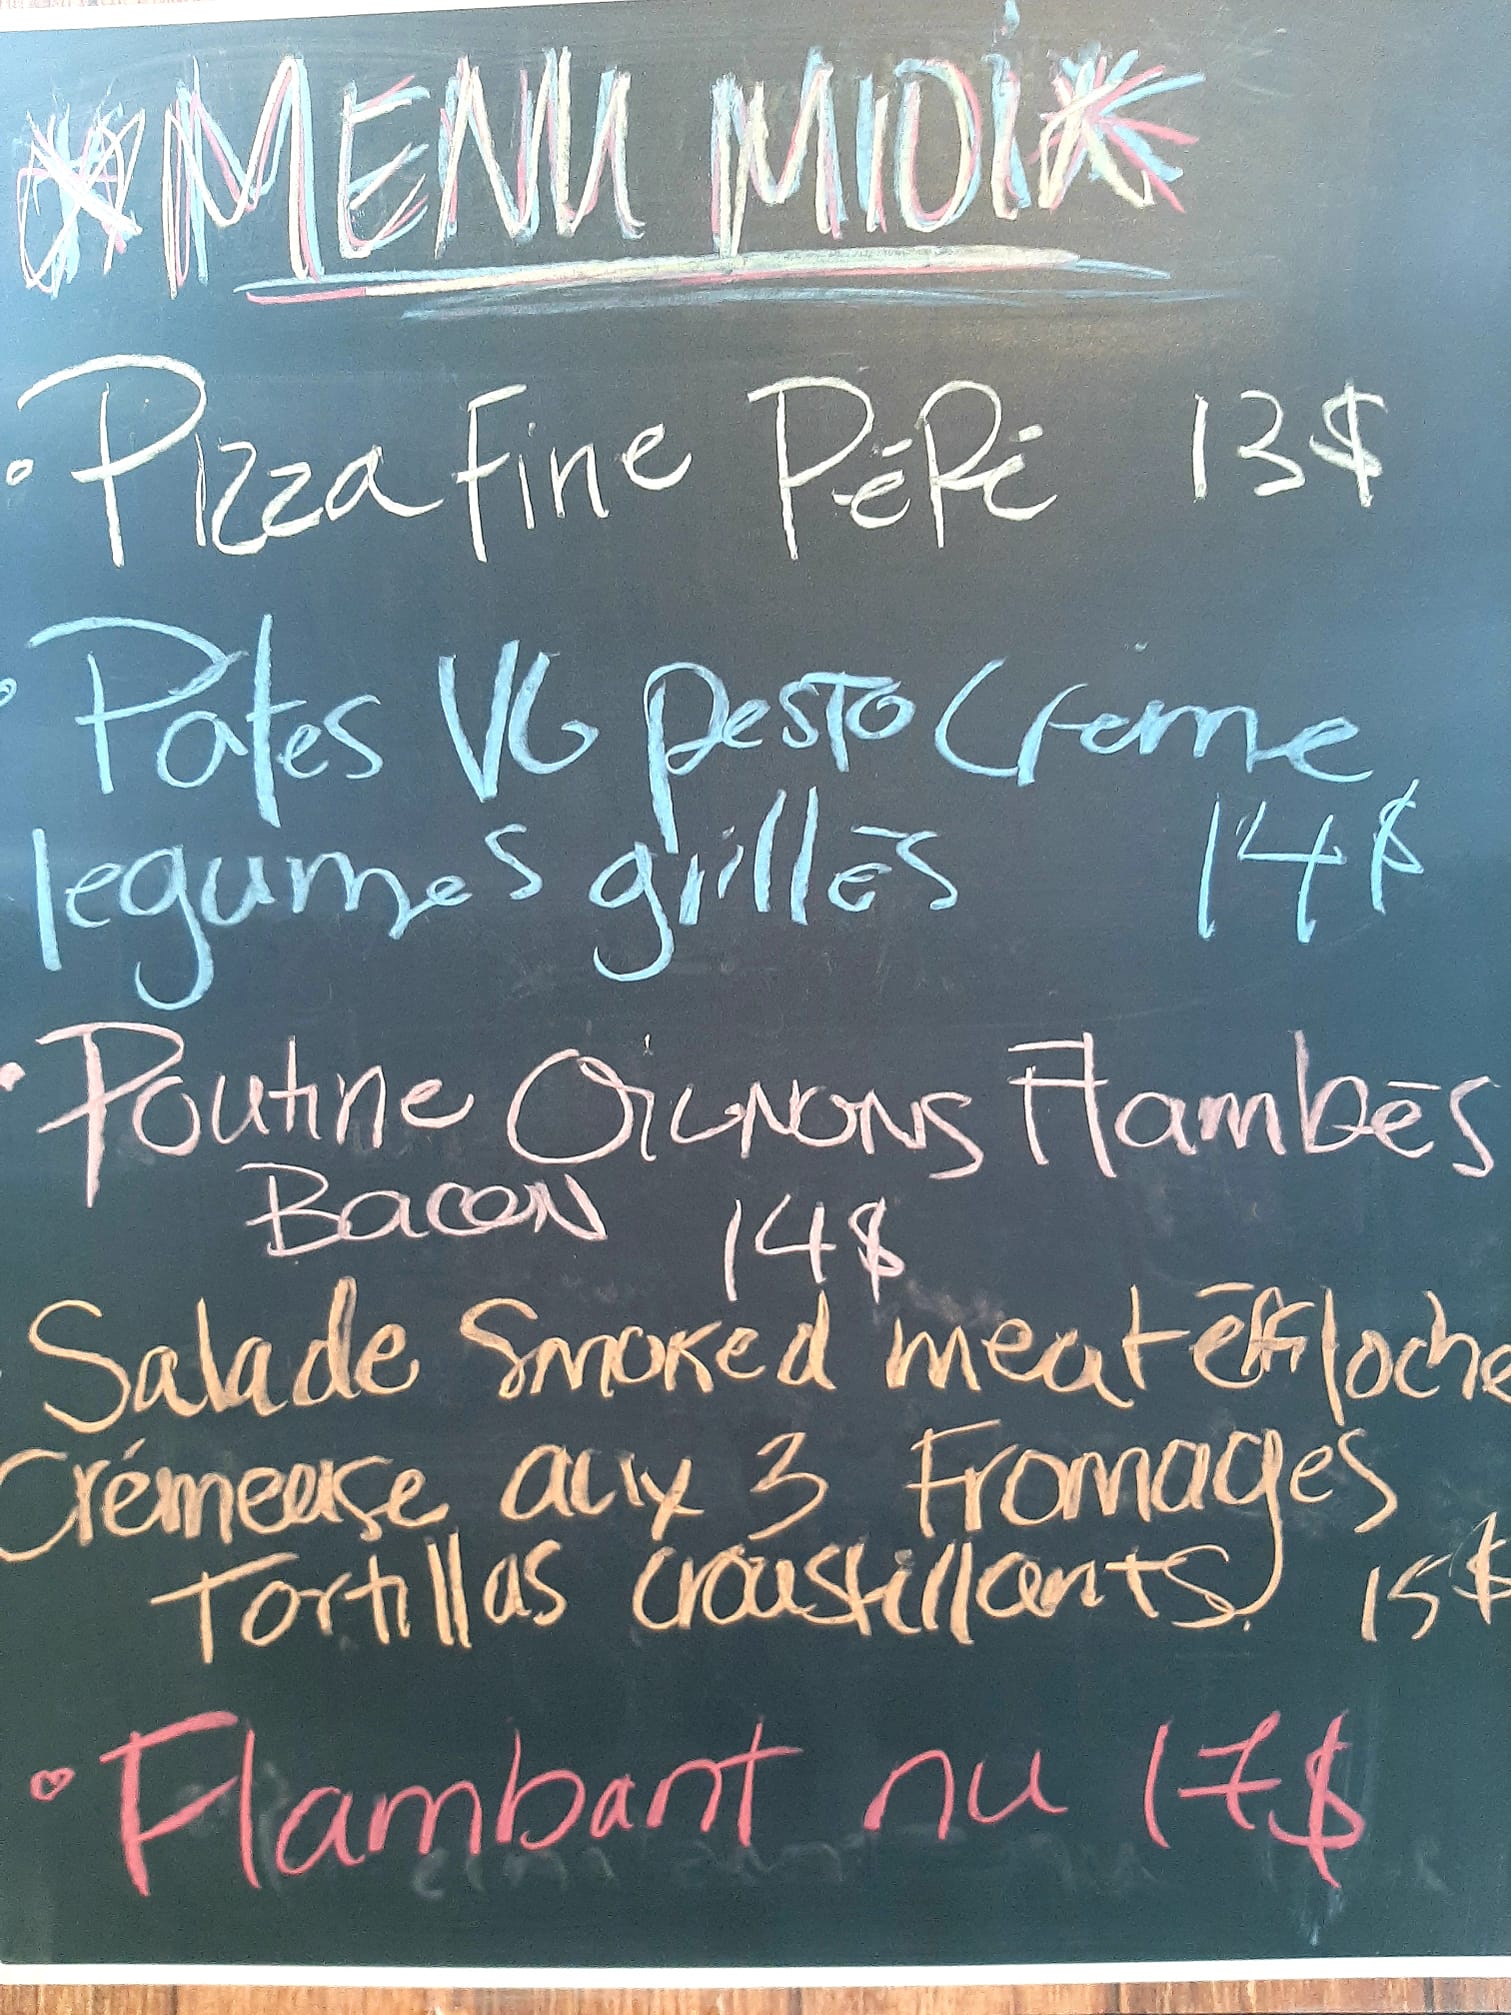 MENU MIDI
• Pizza Fine PéPé 13$
• Pâtes VG pesto Creme
legumes grillés 14$
• Poutine Oignons Flambés
Bacon 14$
Salade Smoked meat éffiloché
Crémeuse aux 3 Fromages
Tortillas croustillants 15$
• Flambant nu 17$